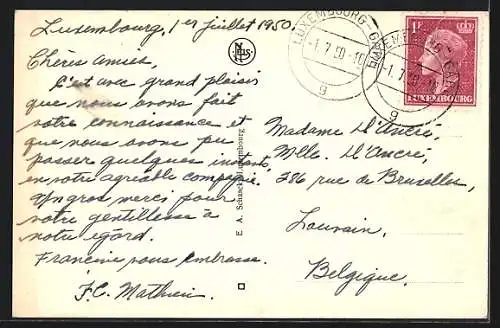 Luxembourg, 1er juillet 1950.
Chères amies,
C'est avec grand plaisir
que nous avons fait
votre connaissance et
que nous avons pu
passer quelques instants,
en votre agréable compagnie.
Un gros merci pour
votre gentillesse à
notre egard.
Francine vous embrasse.
F.C. Mathieu.
Nels
E. A. Schaack, Luxembourg
LUXEMBOURG-GARE
-1.7.50-10
g
LUXEMBOURG-GARE
-1.7.50-10
g
1F
LUXEMBOURG
Madame D'Ancré,
Mlle. D'Ancré,
286 rue de Bruxelles,
Louvain,
Belgique.